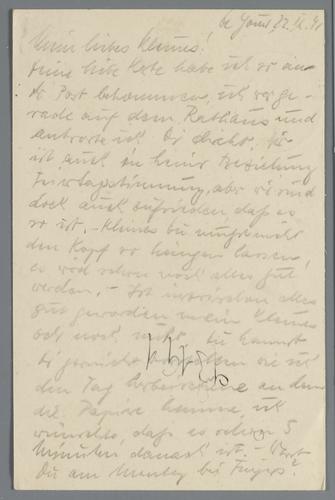 Mein liebes Kleines!
Deine liebe Karte habe ich
Post bekommen, ich
rade auf dem Rathaus und
antworte ich Dir direkt.
ist auch in keiner Beziehung
Feiertagsstimmung, aber wir sind
doch auch zufrieden, daß es
so ist, - Kleines Du mußt nicht
den Kopf so hängen lassen,
es wird schon noch alles gut
werden, - Ist inzwischen alles
gut geworden mein Kleines
oder noch nicht. Du kannst
Dir garnicht vorstellen wie ich
den Tag herbeisehne an dem
die Papiere kommen, ich
wünschte, daß es schon 5
Minuten danach ist. - Warst
Du am Montag bei